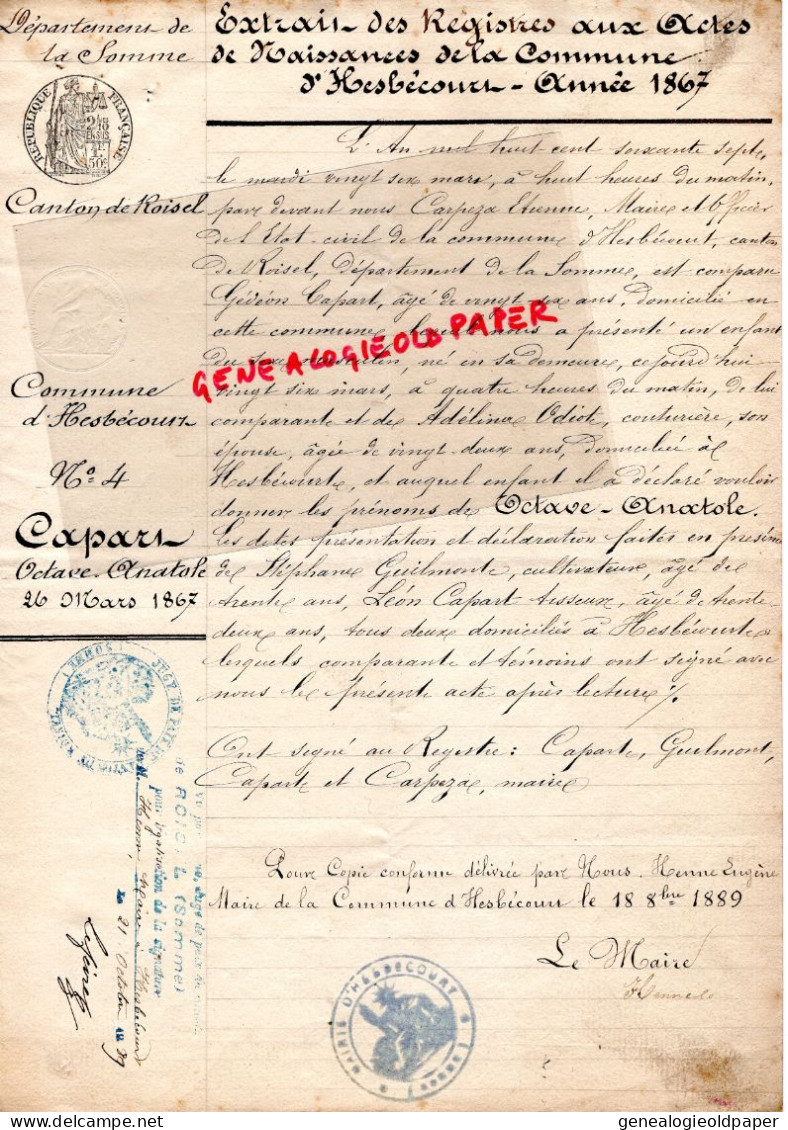 Département de
la Somme
Extrait des Registres aux Actes
de Naissances de la Commune
d'Hesbécourt - Année 1867
RÉPUBLIQUE FRANÇAISE
2/10 EN SUS
1F 50c
Canton de Roisel
Commune
d'Hesbécourt
N° 4
Capart
Octave-Anatole
26 Mars 1867
L'An mil huit cent soixante sept,
le mardi vingt six mars, à huit heures du matin,
par devant nous Carpeza Etienne, Maire et Officier
de l'Etat-civil de la commune d'Hesbécourt, canton
de Roisel, Département de la Somme, est comparu
Gédéon Capart, âgé de vingt-six ans, domicilié en
cette commune, lequel nous a présenté un enfant
du sexe masculin, né en sa demeure, cejourd'hui
vingt six mars, à quatre heures du matin, de lui
comparant et de Adélina Odiot, couturière, son
épouse, âgée de vingt-deux ans, domiciliée à
Hesbécourt, et auquel enfant il a déclaré vouloir
donner les prénoms de Octave-Anatole.
Les dites présentation et déclaration faites en présence
de Stéphane Guilmont, cultivateur, âgé de
trente ans, Léon Capart tisseur, âgé de trente-
deux ans, tous deux domiciliés à Hesbécourt
lesquels comparant et témoins ont signé avec
nous le présent acte après lecture %.
Ont signé au Registre: Capart, Guilmont,
Capart et Carpeza, maire
Pour Copie conforme délivrée par Nous. Henne Eugène
Maire de la Commune d'Hesbécourt le 18 8bre 1889
Le Maire
Henne
GENEALOGIEOLDPAPER
JUGE DE PAIX
juge de paix
de ROISEL (Somme)
pour légalisation de la signature
de M. Henne, Maire à Hesbécourt
Le 21 Octobre 1889
MAIRIE D'HESBÉCOURT (Somme)
delcampe.net
genealogieoldpaper